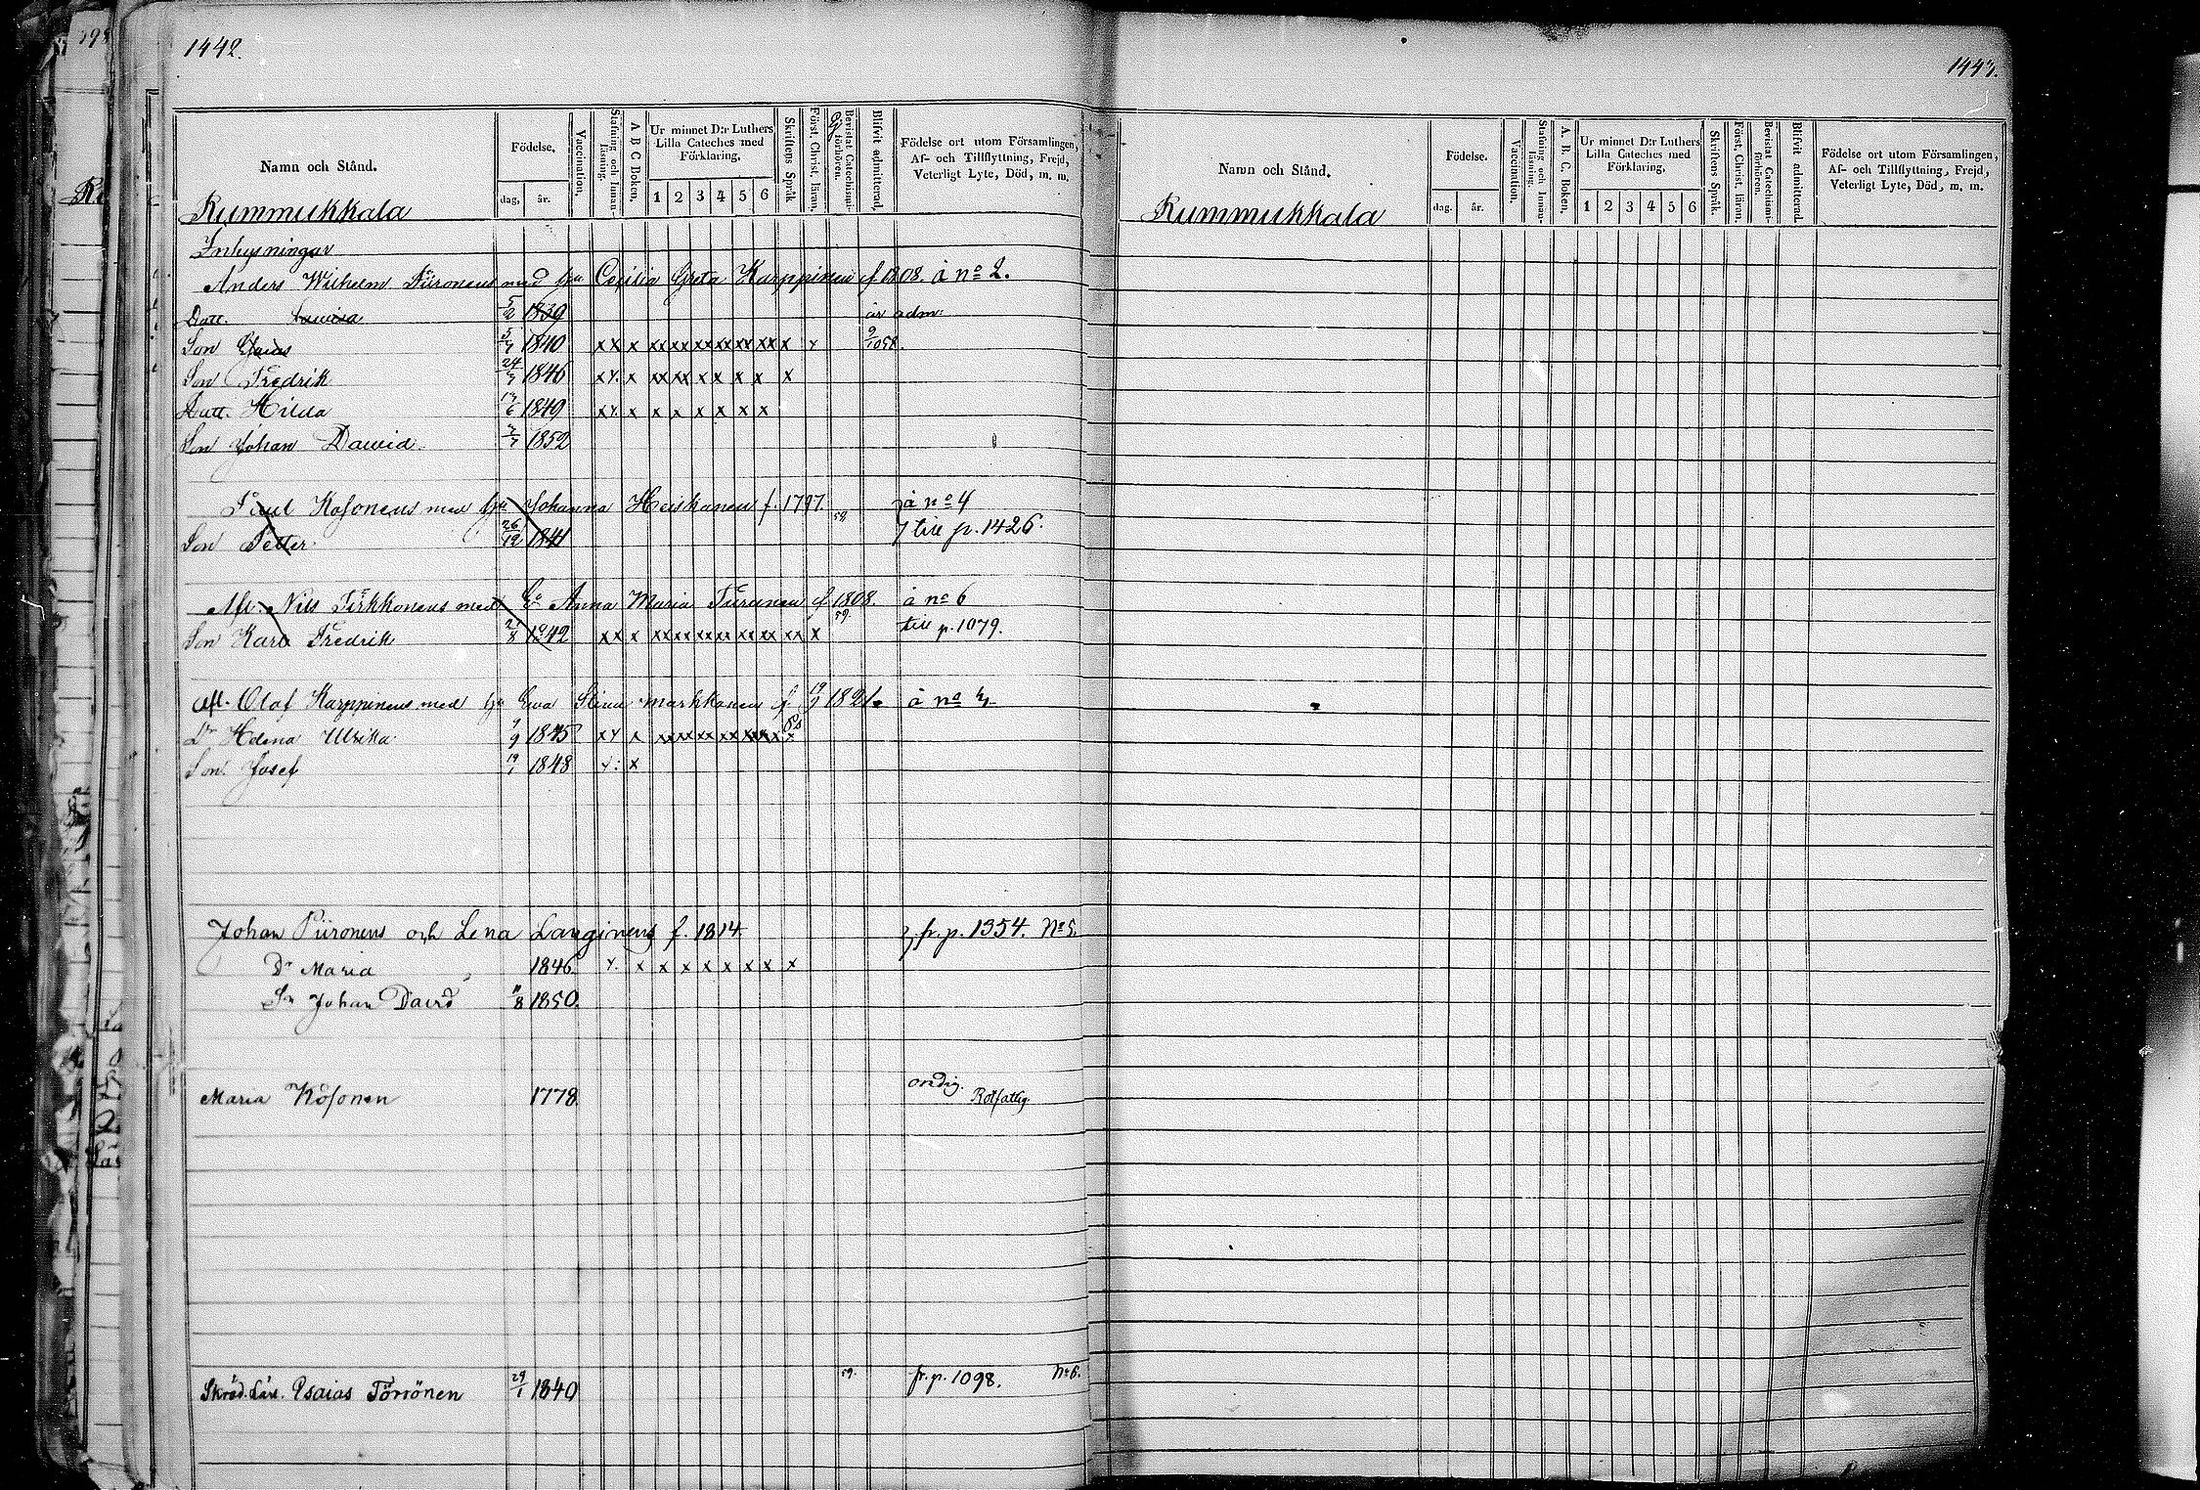 1442.
Namn och Stånd.
Födelse.
dag. år.
Vaccination.
Stafning och Innan-läsning.
A B C Boken.
Ur minnet D:r Luthers Lilla Cateches med Förklaring.
1 2 3 4 5 6
Skriftens Språk
Först. Christ. läran.
Bevistat Catechismi-förhören.
Blifvit admitterad.
Födelse ort utom Församlingen, Af- och Tillflyttning, Frejd, Veterligt Lyte, Död, m. m.
Rummukkala
Inhysningar
Anders Wilhelm Piironens med hu Cecilia Greta Karppinen f. 1808. å no 2.
Dott. Lovisa 1839 är adm.
Son Esaias 5/7 1840 xx x xx xx xx xx xx xx x x
Son Fredrik 24/3 1846 x x. x xx xx x x x x x
Dott. Hilda 1849 x x. x x x x x x x
Son Johan Dawid 1852
Paul Kosonens med hu Johanna Heiskanen f. 1797. å no 4
Son Petter 26/12 1841 till p. 1426.
Afl. Nils Pirkkonens med Ea Anna Maria Turunen f 1808. å no 6
Son Karl Fredrik 1842 xx x xx xx xx xx xx xx x 59. till p. 1079.
Afl. Olof Karppinens med hu Eva Stina Markkanen f 1821. å no
Dr Helena Ulrika 1845 x x x xx xx xx xx
Son Josef 19/1 1848 x
Johan Piironens och Lena Langinens f. 1814. fr. p. 1354. No 5.
Dr Maria 1846 x. x x x x x x x x
Sn Johan David 11/8 1850.
Maria Kosonen 1778. oredig. Rotfattig.
Skräd. Lärl. Esaias Törrönen 29/1 1840 59. fr. p. 1098. No 6.
1443.
Namn och Stånd.
Födelse.
dag. år.
Vaccination.
Stafning och Innan-läsning.
A. B. C. Boken.
Ur minnet D:r Luthers Lilla Cateches med Förklaring.
1 2 3 4 5 6
Skriftens Språk.
Först. Christ. läran.
Bevistat Catechismi-förhören.
Blifvit admitterad.
Födelse ort utom Församlingen, Af- och Tillflyttning, Frejd, Veterligt Lyte, Död, m. m.
Rummukkala